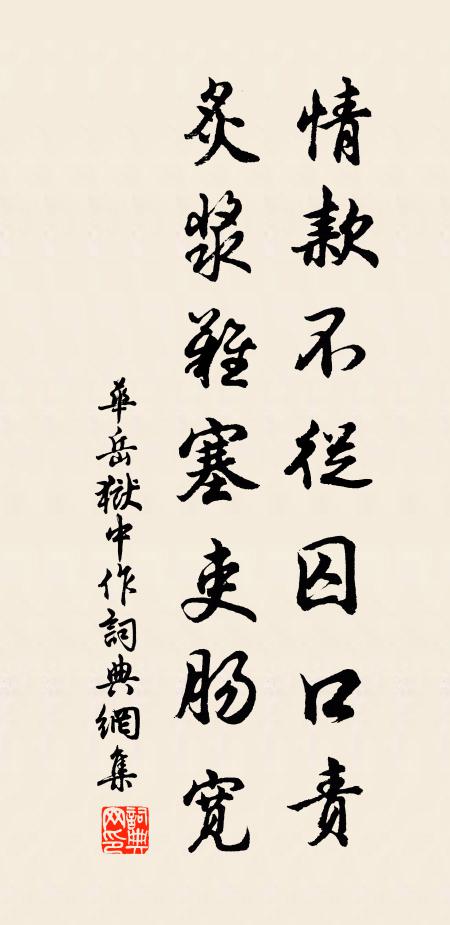 情款不從囚口責
炙漿難塞吏腸寬
華岳獄中作詞典網集
詞典網印